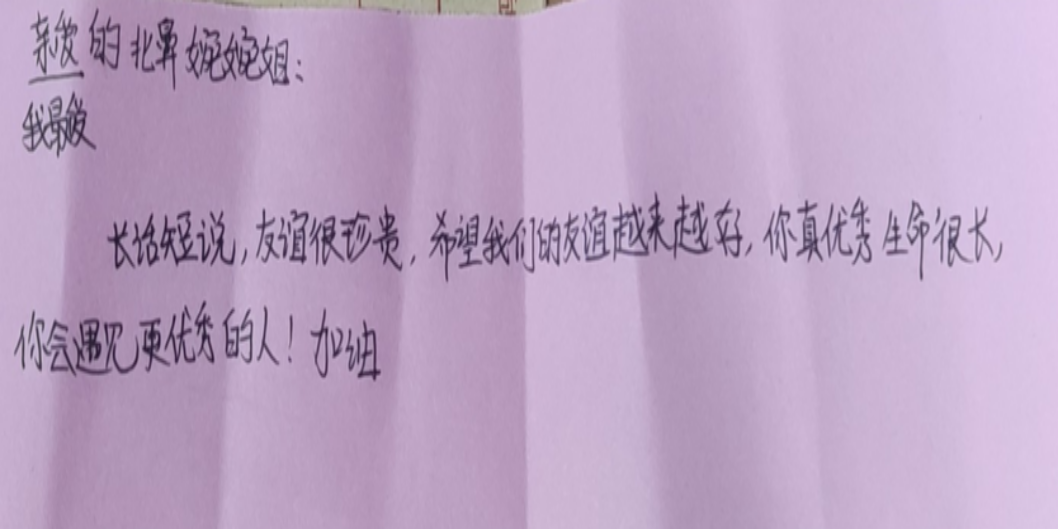 亲爱的北鼻婉婉姐：
我最爱
长话短说，友谊很珍贵，希望我们的友谊越来越好，你真优秀生命很长，
你会遇见更优秀的人！加油